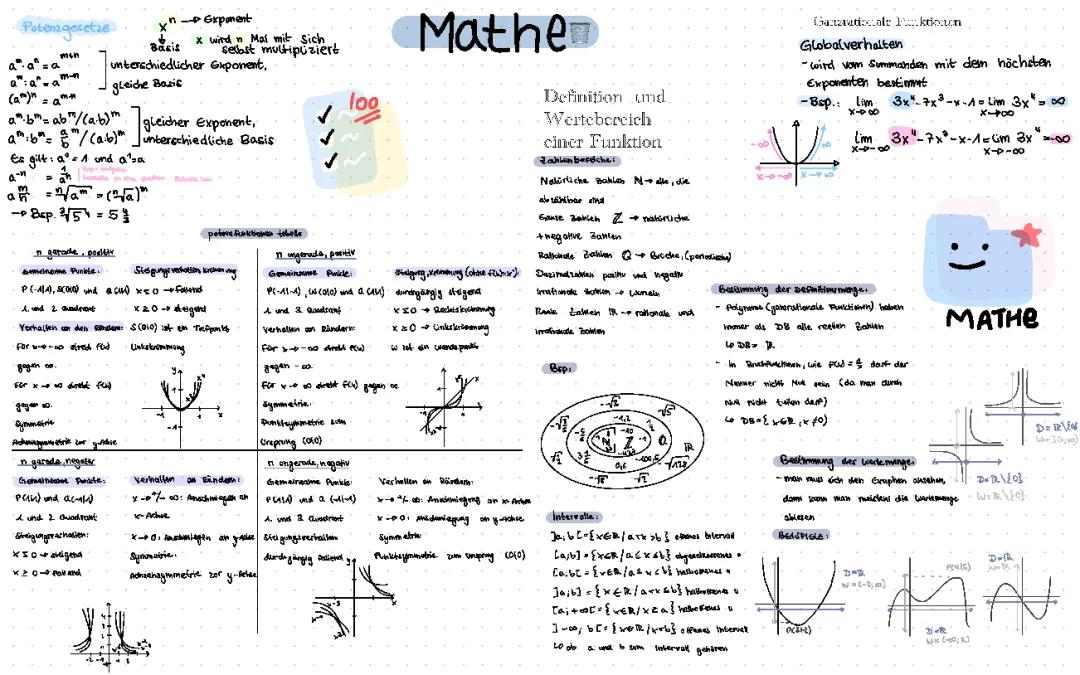 Mathe
Potenzgesetze
xⁿ → Exponent
Basis
x wird n Mal mit sich
selbst multipliziert
aᵐ · aⁿ = aᵐ⁺ⁿ
aᵐ : aⁿ = aᵐ⁻ⁿ
unterschiedlicher Exponent,
gleiche Basis
aᵐ · bᵐ = abᵐ / (a·b)ᵐ
gleicher Exponent,
unterschiedliche Basis
Es gilt: a⁰ = 1 und a¹ = a
100
Potenzfunktionen tabelle
n gerade, positiv
Gemeinsame Punkte:
P(-1|1), S(0|0) und Q(1|1)
1. und 2 Quadrant
Verhalten an den Rändern:
Für x → -∞ strebt f(x)
gegen ∞.
Für x → ∞ strebt f(x)
gegen ∞.
Symmetrie
Achsensymmetrie zur y-Achse
Steigungsverhalten, Krümmung
x ≤ 0 → Fallend
x ≥ 0 → steigend
S(0|0) ist ein Tiefpunkt
Linkskrümmung
n ungerade, positiv
Gemeinsame Punkte:
P(-1|-1), W(0|0) und Q(1|1)
1. und 3 Quadrant
Verhalten an Rändern:
Für x → -∞ strebt f(x)
gegen -∞.
Für x → ∞ strebt f(x) gegen ∞.
Symmetrie:
Punktsymmetrie zum
Ursprung (0|0)
durchgängig steigend
x ≤ 0 → Rechtskrümmung
x ≥ 0 → Linkskrümmung
W ist ein Wendepunkt
n gerade, negativ
Gemeinsame Punkte:
P(1|1) und Q(-1|1)
1 und 2 Quadrant
Steigungsverhalten:
x ≤ 0 → steigend
x ≥ 0 → Fallend
Verhalten an Rändern:
x → +/- ∞: Anschmiegen an
x-Achse
x → 0: Anschmiegen an y-Achse
Symmetrie:
Achsensymmetrie zur y-Achse
n ungerade, negativ
Gemeinsame Punkte:
P(1|1) und Q(-1|-1)
1 und 3 Quadrant
Steigungsverhalten
durchgängig fallend
Verhalten an Rändern:
x → +/- ∞: Anschmiegung an x-Achse
x → 0: Anschmiegung an y-Achse
Symmetrie
Punktsymmetrie zum Ursprung (0|0)
Definition und
Wertebereich
einer Funktion
Zahlenbereiche:
Natürliche Zahlen ℕ → alle, die
abzählbar sind
Ganze Zahlen ℤ → natürliche
+ negative Zahlen
Rationale Zahlen ℚ → Brüche, (periodische)
Dezimalzahlen positiv und negativ
Irrationale Zahlen → Wurzeln
Reele Zahlen ℝ → rationale und
irrationale Zahlen
Bsp:
Intervalle:
]a; b[ = {x∈ℝ / a<x>b} offenes Intervall
[a; b] = {x∈ℝ / a≤x≤b} abgeschlossenes "
[a; b[ = {x∈ℝ / a≤x<b} halboffenes "
]a; b] = {x∈ℝ / a<x≤b} halboffenes "
[a; +∞[ = {x∈ℝ / x≥a} halboffenes "
]-∞; b[ = {x∈ℝ / x<b} offenes Intervall
↳ ob a und b zum Intervall gehören
Ganzrationale Funktionen
Globalverhalten
- wird vom Summanden mit dem höchsten
Exponenten bestimmt
- Bsp.: lim x→∞ 3x⁴ - 7x³ - x - 1 = lim x→∞ 3x⁴ = ∞
lim x→-∞ 3x⁴ - 7x³ - x - 1 = lim x→-∞ 3x⁴ = -∞
MATHE
Bestimmung der Definitionsmenge:
immer als DB alle reellen Zahlen
↳ DB = ℝ
Nenner nicht Null sein (da man durch
Null nicht teilen darf)
↳ DB = {x∈ℝ, x≠0}
D = ℝ\{0}
W = ℝ\{0}
Bestimmung der Wertemenge:
- man muss sich den Graphen ansehen,
dann kann man meistens die Wertemenge
ablesen
BEISPIELE:
D = ℝ
W = [-2; ∞)
D = ℝ
D = ℝ
W = ℝ